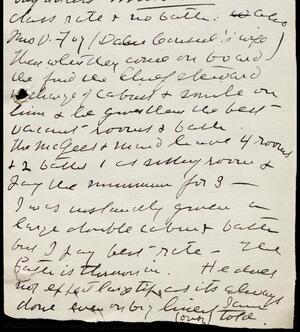 class rate & no bath.
Then when they come on board
the find the Chief Steward
in charge of cabins & smile on
him & he gives them the best
vacant rooms & bath.
The McGees & maid have 4 rooms
& 2 baths 1 as sitting room &
pay the minimum for 3 —
I was instantly given a
large double cabin & bath
but I pay best rate - the
bath is thrown in. He does
not expect large tip as its always
done even on big liners I am
(over) told.